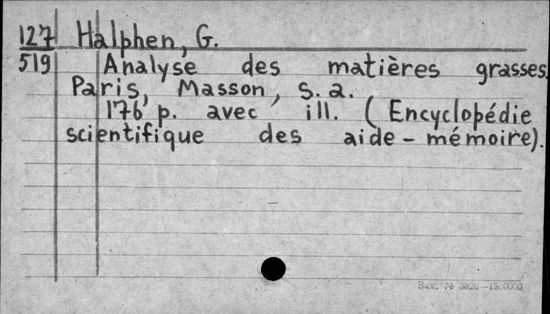 127 Halphen, G.
519 Analyse des matières grasses.
Paris, Masson, s. a.
176 p. avec ill. (Encyclopédie
scientifique des aide-mémoire).